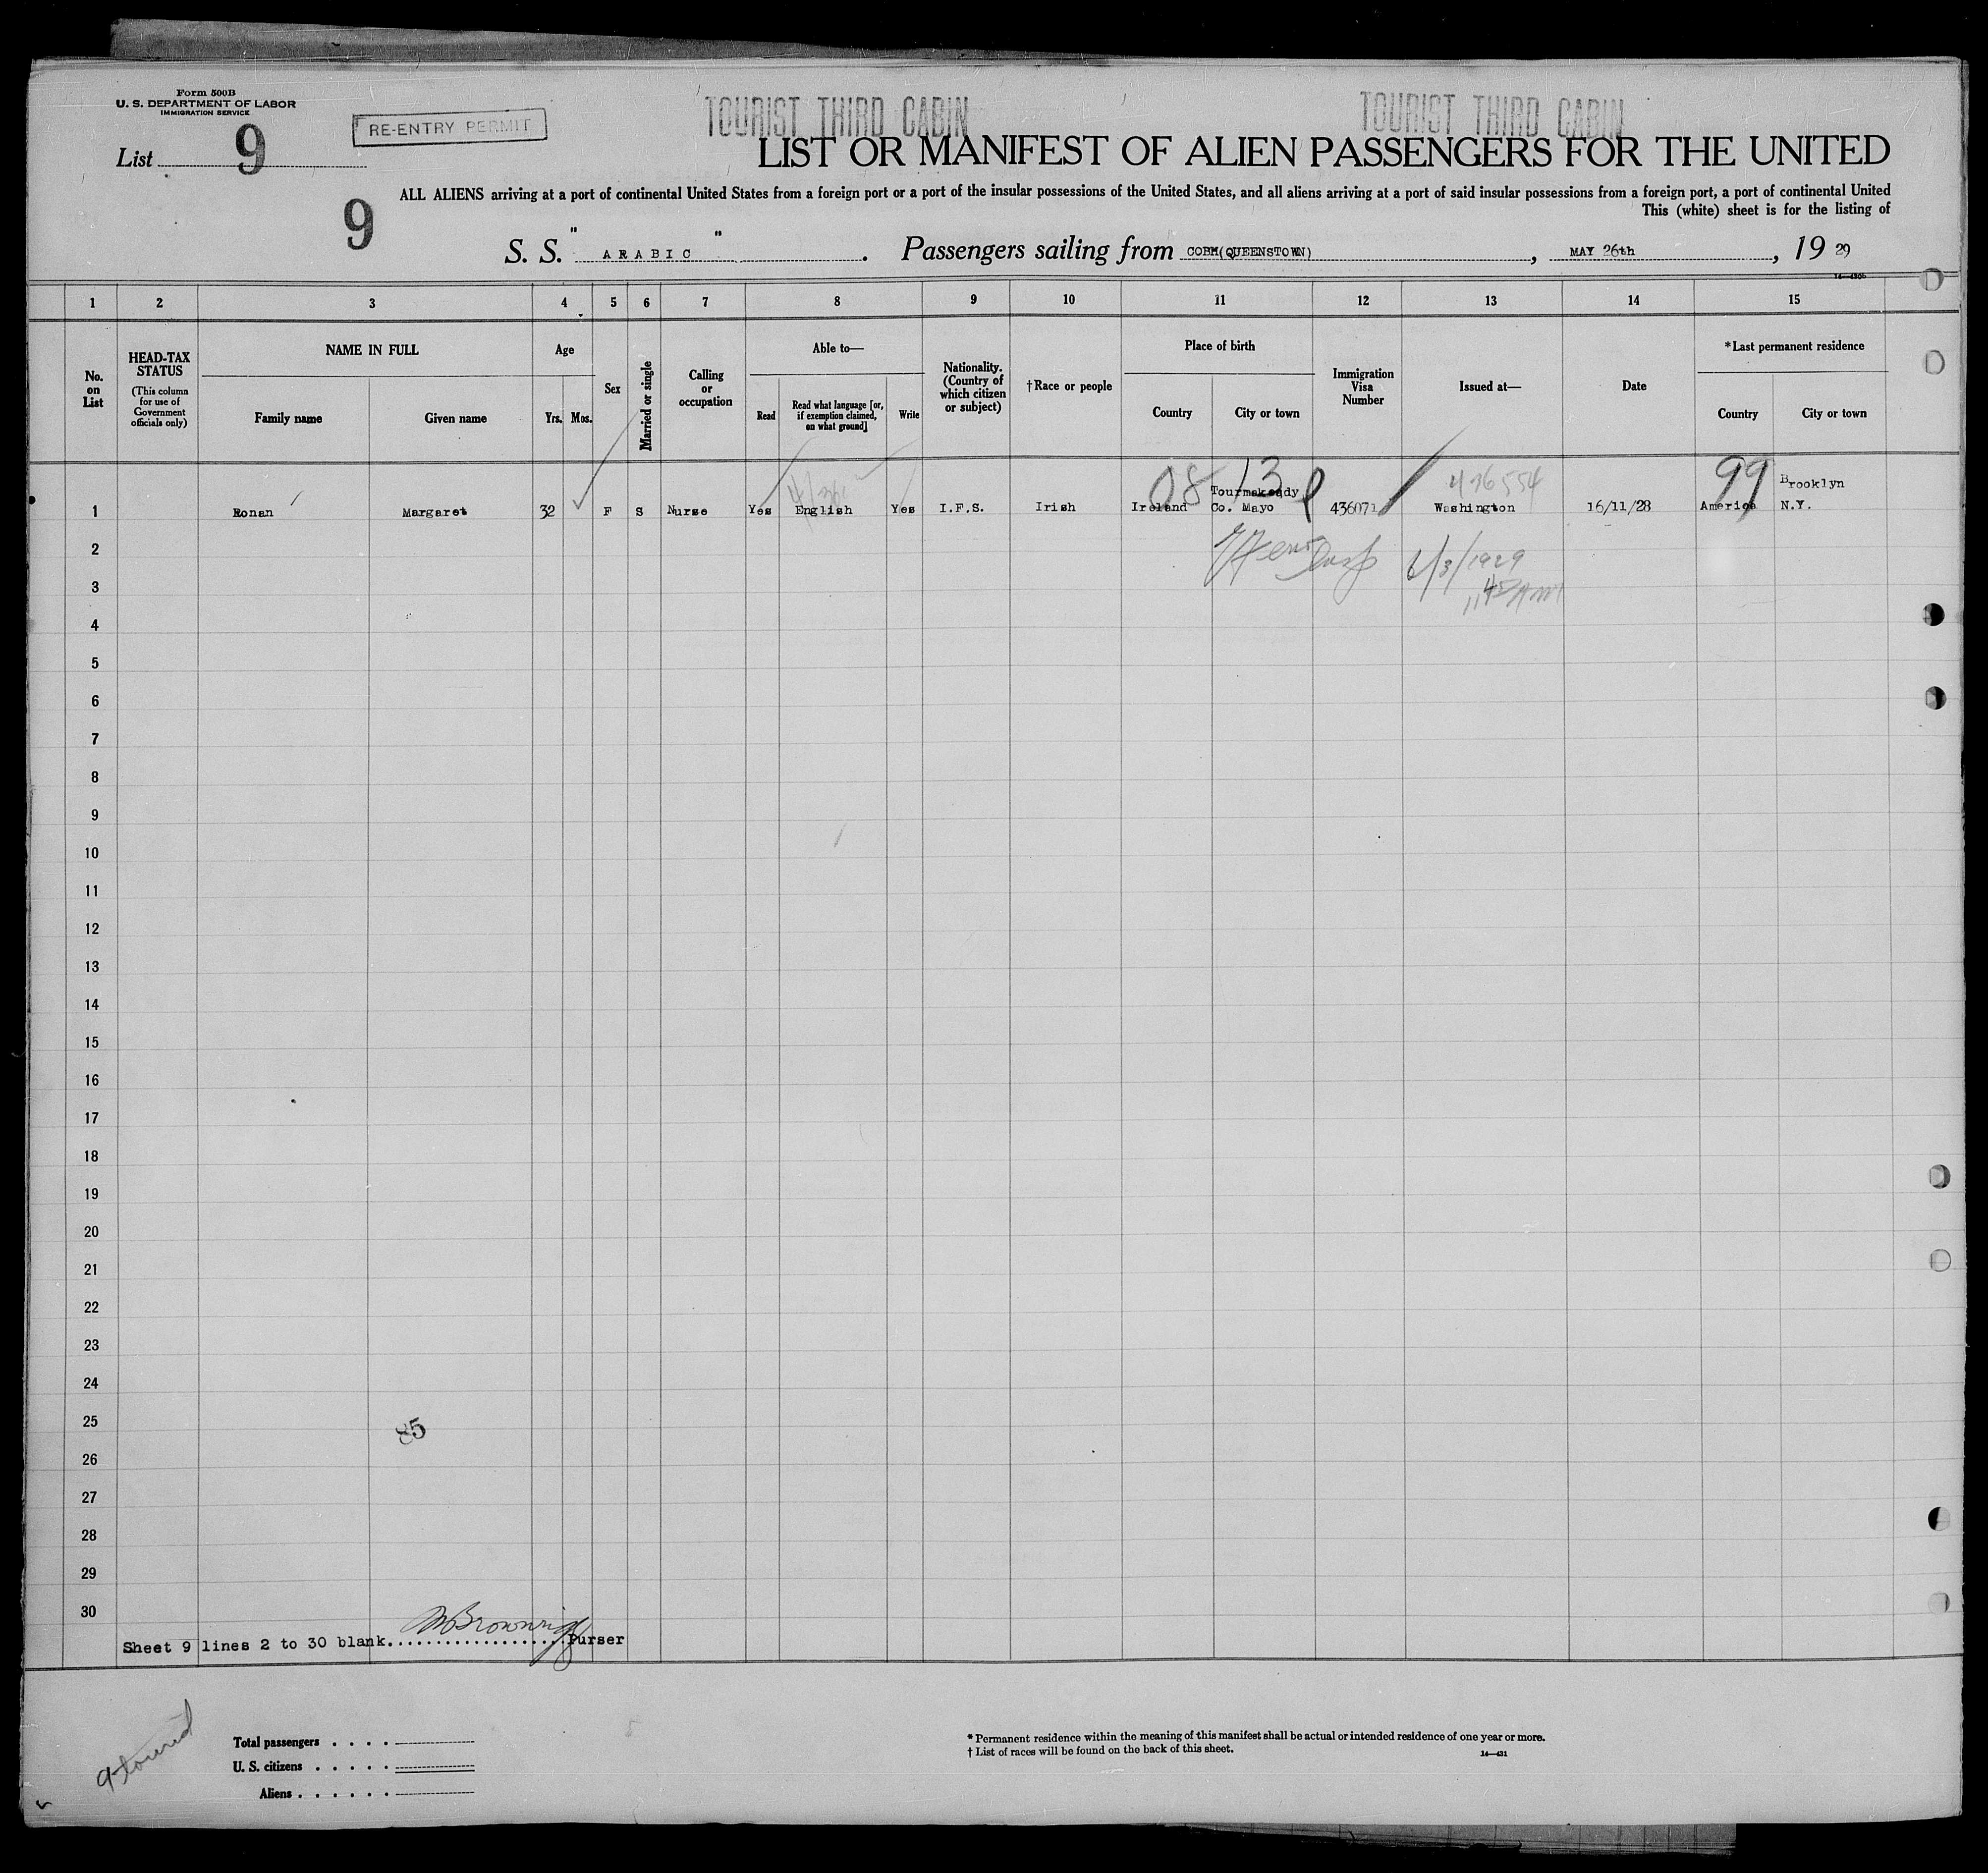 Form 500B
U. S. DEPARTMENT OF LABOR
IMMIGRATION SERVICE
List 9
RE-ENTRY PERMIT
TOURIST THIRD CABIN
TOURIST THIRD CABIN
LIST OR MANIFEST OF ALIEN PASSENGERS FOR THE UNITED
ALL ALIENS arriving at a port of continental United States from a foreign port or a port of the insular possessions of the United States, and all aliens arriving at a port of said insular possessions from a foreign port, a port of continental United
This (white) sheet is for the listing of
9
S. S. " ARABIC " . Passengers sailing from COBH(QUEENSTOWN) , MAY 26th , 19 29
14—430b
1 2 3 4 5 6 7 8 9 10 11 12 13 14 15
No. on List
HEAD-TAX STATUS
(This column for use of Government officials only)
NAME IN FULL
Family name Given name
Age
Yrs. Mos.
Sex
Married or single
Calling or occupation
Able to—
Read
Read what language [or, if exemption claimed, on what ground]
Write
Nationality. (Country of which citizen or subject)
†Race or people
Place of birth
Country City or town
Immigration Visa Number
Issued at—
Date
*Last permanent residence
Country City or town
08 13 476554 99
Tourmakeady Brooklyn
1 Ronan Margaret 32 F S Nurse Yes English Yes I.F.S. Irish Ireland Co. Mayo 436071 Washington 16/11/28 America N.Y.
2
6/3/1929
3
11 45 AM
4
5
6
7
8
9
10
11
12
13
14
15
16
17
18
19
20
21
22
23
24
25
85
26
27
28
29
30
Sheet 9 lines 2 to 30 blank....................Purser
Total passengers . . . .
U. S. citizens . . . . .
Aliens . . . . . .
* Permanent residence within the meaning of this manifest shall be actual or intended residence of one year or more.
† List of races will be found on the back of this sheet.
14—431